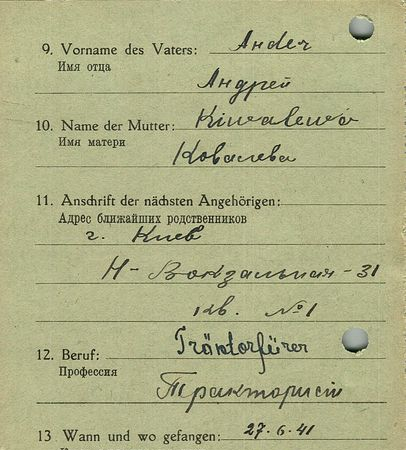 9. Vorname des Vaters: Ander
Имя отца
Андрей
10. Name der Mutter:
Имя матери
Ковалева
11. Anschrift der nächsten Angehörigen:
Адрес ближайших родственников
г. Киев
Н-Вокзальная-31
кв. №1
12. Beruf: Träktorfürer
Профессия
Тракторист
13 Wann und wo gefangen: 27.6.41